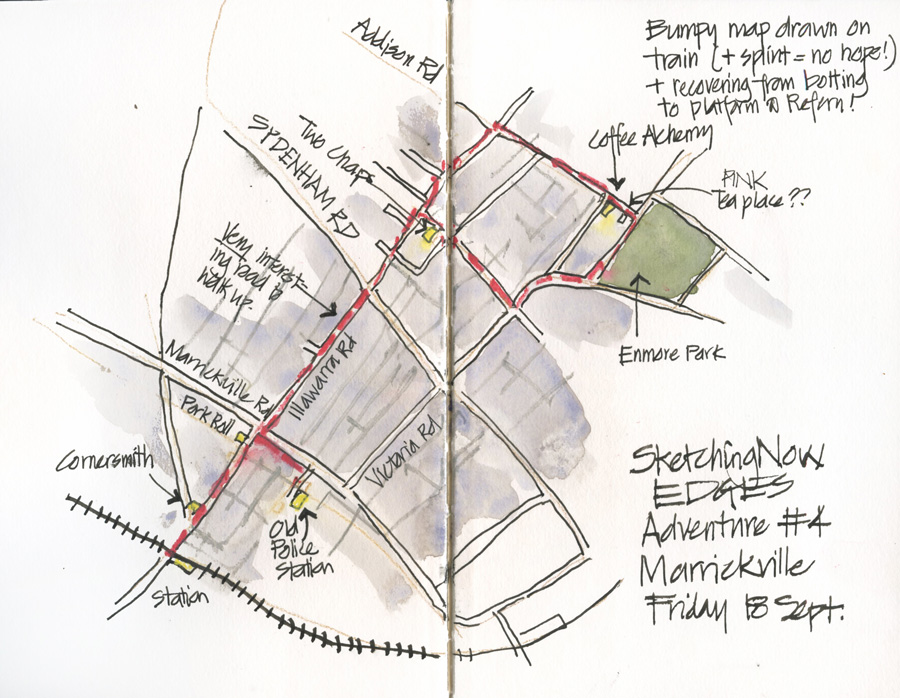 Addison Rd
Bumpy map drawn on
train (+ splint = no hope!)
+ recovering from bolting
to platform @ Refern!
Coffee Alchemy
PINK
Tea place ??
Two Chaps
SYDENHAM RD
Very interest-
ing road to
walk up.
Enmore Park
Marrickville Rd
Illawarra Rd
Park Roll
Victoria Rd
Cornersmith
Old
Police
Station
Station
SketchingNow
EDGES
Adventure #4
Marrickville
Friday 18 Sept.